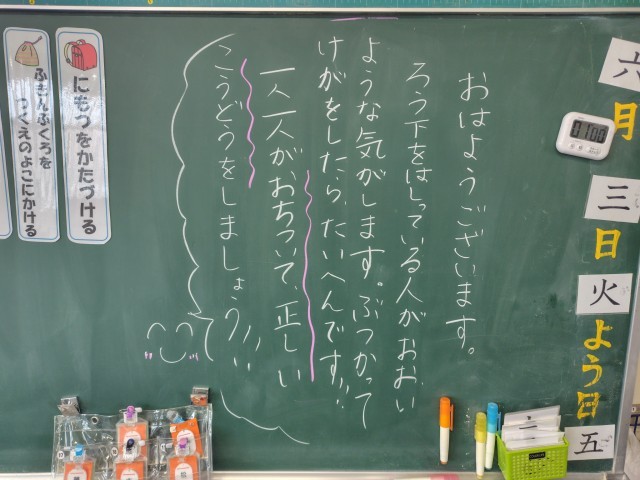 六
月
三
日
火
よう日
五
0100
おはようございます。
ろう下をはしっている人がおおい
ような気がします。ぶつかって
けがをしたら、たいへんです!!
一人一人が、おちついて、正しい
こうどうをしましょう!!
にもつをかたづける
ふきんぶくろを
つくえのよこにかける